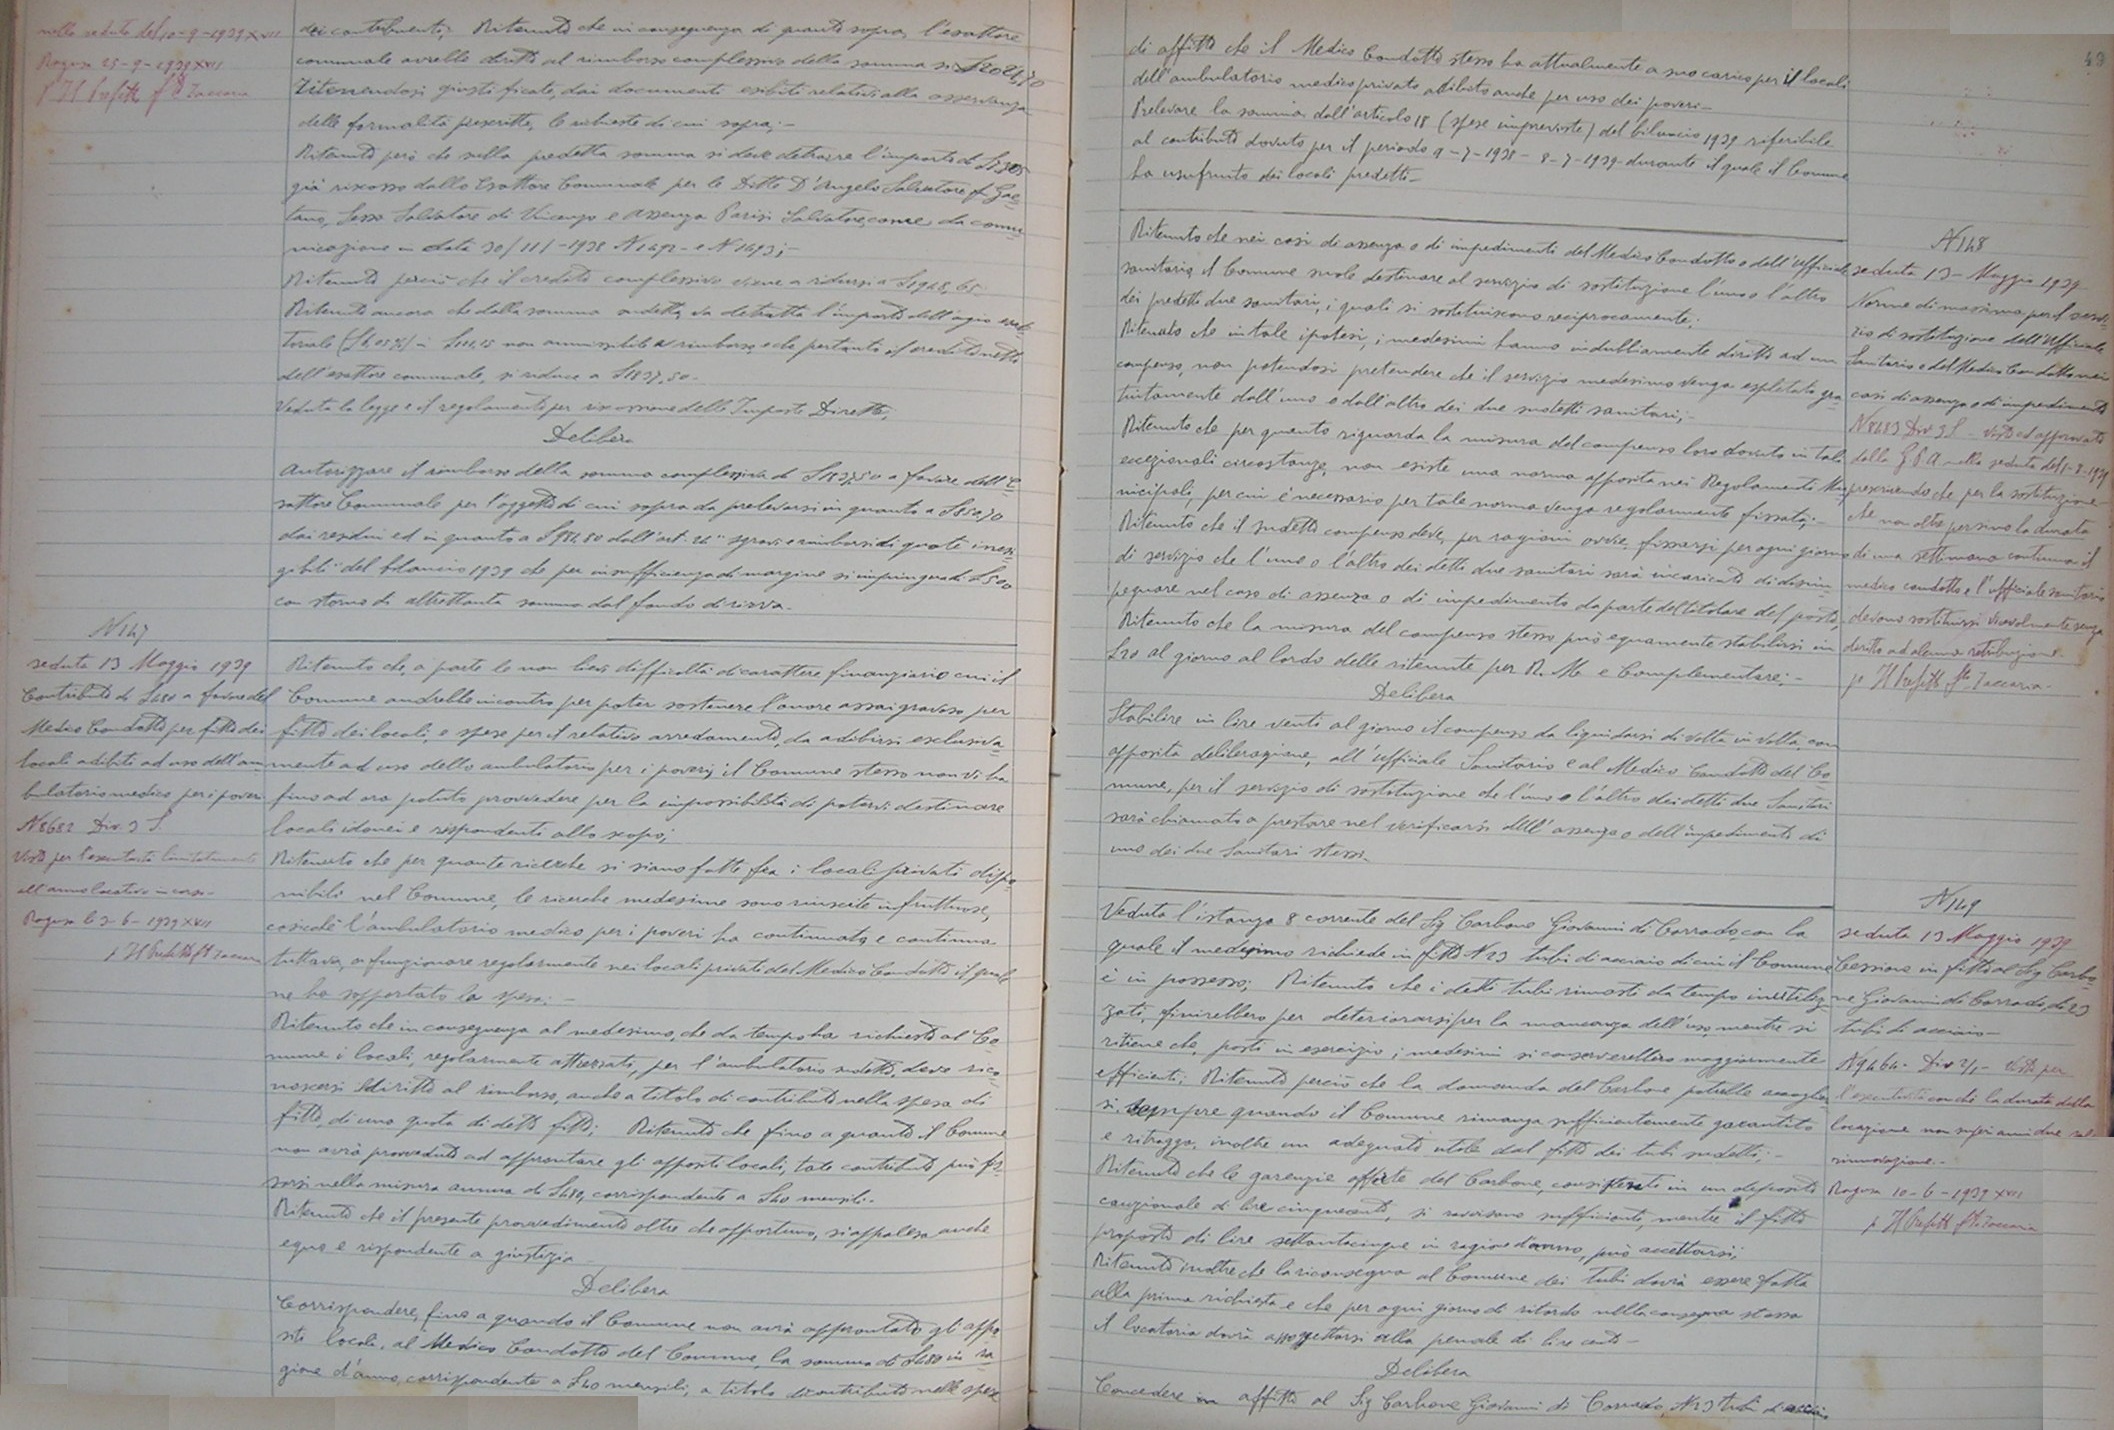 nella seduta del 10-9-1939 XVII
Ragusa 25-9-1939 XVII
p Il Prefetto fto Zaccaria
dei contribuenti; Ritenuto che in conseguenza di quanto sopra, l'esattore
comunale avrebbe diritto al rimborso complessivo della somma di
Ritenendosi giustificate, dai documenti esibiti relativi alla osservanza
delle formalità prescritte, le richieste di cui sopra;-
Ritenuto però che sulla predetta somma si deve detrarre l'importo di
già riscosso dallo Esattore Comunale per le Ditte D'Angelo Salvatore f Gae=
tano, Sesso Salvatore di Vincenzo e Assenza Parisi Salvatore, come da comu=
nicazione in data 30/11/-1938 N 1492- e N 1493;-
Ritenuto perciò che il credito complessivo viene a ridursi a £1948,65
Ritenuto ancora che dalla somma sudetta, va detratto l'importo dell'agio esat=
toriale £111,15 non ammissibile a rimborso, e che pertanto il credito netto
dell'esattore comunale, si riduce a £1837,50-
Veduta la legge e il regolamento per riscossione delle Imposte Dirette;
Delibera
Autorizzare il rimborso della somma complessiva di £1837,50 a favore dell'E=
sattore Comunale per l'oggetto di cui sopra da prelevarsi in quanto a £850,70
dai residui ed in quanto a £986,80 dall'art. 24 "sgravi e rimborsi di quote inesi=
gibili" del bilancio 1939 che per insufficienza di margine si impingua di £500
con storno di altrettanta somma dal fondo di riserva.-
N 147
seduta 13 Maggio 1939
Contributo di £480 a favore del
Medico Condotto per fitto dei
locali adibiti ad uso dell'am=
bulatorio medico per i poveri
N 8682 Div 3 S.
Visto per l'esecutorietà limitatamente
all'anno locativo in corso-
Ragusa li 3-6-1939 XVII
p Il Prefetto fto Zaccaria
Ritenuto che, a parte le non lievi difficoltà di carattere finanziario cui il
Comune andrebbe incontro per poter sostenere l'onere assai gravoso per
fitto dei locali, e spese per il relativo arredamento, da adibirsi esclusiva=
mente ad uso dello ambulatorio per i poveri, il Comune stesso non vi ha
fino ad ora potuto provvedere per la impossibilità di potervi destinare
locali idonei e rispondenti allo scopo;
Ritenuto che per quante ricerche si siano fatte fra i locali privati dispo=
nibili nel Comune, le ricerche medesime sono riuscite infruttuose,
cosicchè l'ambulatorio medico per i poveri ha continuato e continua
tuttavia, a funzionare regolarmente nei locali privati del Medico Condotto il quale
ne ha sopportato la spesa;-
Ritenuto che in conseguenza al medesimo, che da tempo ha richiesto al Co=
mune i locali, regolarmente attrezzati, per l'ambulatorio sudetto, deve rico=
noscersi il diritto al rimborso, anche a titolo di contributo nella spesa di
fitto, di una quota di detto fitto; Ritenuto che fino a quando il Comune
non avrà provveduto ad approntare gli appositi locali, tale contributo può fis=
sarsi nella misura annua di £480, corrispondente a £40 mensili.-
Ritenuto che il presente provvedimento oltre che opportuno, si appalesa anche
equo e rispondente a giustizia
Delibera
Corrispondere, fino a quando il Comune non avrà approntato gli appo=
siti locali, al Medico Condotto del Comune, la somma di £480 in ra=
gione d'anno, corrispondente a £40 mensili, a titolo di contributo nelle spese
49
di affitto che il Medico Condotto stesso ha attualmente a suo carico per il locali
dell'ambulatorio medico privato adibito anche per uso dei poveri-
Prelevare la somma dall'articolo 18 (spese impreviste) del bilancio 1939 riferibile
al contributo dovuto per il periodo 9-7-1938 - 8-7-1939 durante il quale il Comune
ha usufruito dei locali predetti-
Ritenuto che nei casi di assenza o di impedimenti del Medico Condotto o dell'Ufficiale
sanitario, il Comune suole destinare al servizio di sostituzione l'uno o l'altro
dei predetti due sanitari, i quali si sostituiscono reciprocamente;
Ritenuto che in tale ipotesi, i medesimi hanno indubbiamente diritto ad un
compenso, non potendosi pretendere che il servizio medesimo venga espletato gra=
tuitamente dall'uno o dall'altro dei due sudetti sanitari;-
Ritenuto che per quanto riguarda la misura del compenso loro dovuto in tali
eccezionali circostanze, non esiste una norma apposita nei Regolamenti Mu=
nicipali, per cui è necessario per tale norma venga regolarmente fissata;-
Ritenuto che il sudetto compenso deve, per ragioni ovvie, fissarsi per ogni giorno
di servizio che l'uno o l'altro dei detti due sanitari sarà incaricato di disim=
pegnare nel caso di assenza o di impedimento da parte del titolare del posto,
Ritenuto che la misura del compenso stesso può equamente stabilirsi in
£20 al giorno al lordo delle ritenute per R.M. e Complementare;-
Delibera
Stabilire in lire venti al giorno il compenso da liquidarsi di volta in volta con
apposita deliberazione, all'Ufficiale Sanitario e al Medico Condotto del Co=
mune, per il servizio di sostituzione che l'uno o l'altro dei detti due Sanitari
sarà chiamato a prestare nel verificarsi dell'assenza o dell'impedimento di
uno dei due Sanitari stessi-
N 148
seduta 13- Maggio 1939
Norme di massima per il servi=
zio di sostituzione dell'Ufficiale
Sanitario e del Medico Condotto nei
casi di assenza o di impedimento
N 8683 Div 3 S - Visto ed approvato
dalla G.P.A. nella seduta del 1-8-1939
prescrivendo che per la sostituzione
che non oltrepassino la durata
di una settimana continua il
medico condotto e l'ufficiale sanitario
devono sostituirsi vicendevolmente senza
diritto ad alcuna retribuzione
p Il Prefetto fto Zaccaria-
Veduta l'istanza 8 corrente del Sig Carbone Giovanni di Corrado, con la
quale il medesimo richiede in fitto N 23 tubi di acciaio di cui il Comune
è in possesso; Ritenuto che i detti tubi rimasti da tempo inutiliz=
zati, finirebbero per deteriorarsi per la mancanza dell'uso, mentre si
ritiene che, posti in esercizio, i medesimi si conserverebbero maggiormente
efficienti; Ritenuto perciò che la domanda del Carbone potrebbe accoglier=
si, sempre quando il Comune rimanga sufficientemente garantito
e ritragga, inoltre un adeguato utile dal fitto dei tubi sudetti;-
Ritenuto che le garenzie offerte del Carbone, consistenti in un deposito
cauzionale di lire cinquecento, si ravvisano sufficienti, mentre il fitto
proposto di lire settantacinque in ragione d'anno, può accettarsi;
Ritenuto inoltre che la riconsegna al Comune dei tubi dovrà essere fatta
alla prima richiesta e che per ogni giorno di ritardo nella consegna stessa
il locatario dovrà assoggettarsi alla penale di lire cento-
Delibera
Concedere in affitto al Sig Carbone Giovanni di Corrado, N 23 tubi di acciaio
N 149
seduta 13 Maggio 1939
Cessione in fitto al Sig Carbo=
ne Giovanni di Corrado, di 23
tubi di acciaio-
N 9464- Div 2/1- Visto per
l'esecutività con che la durata della
locazione non superi anni due salvo
rinnovazione.-
Ragusa 10-6-1939 XVII
p Il Prefetto fto Zaccaria